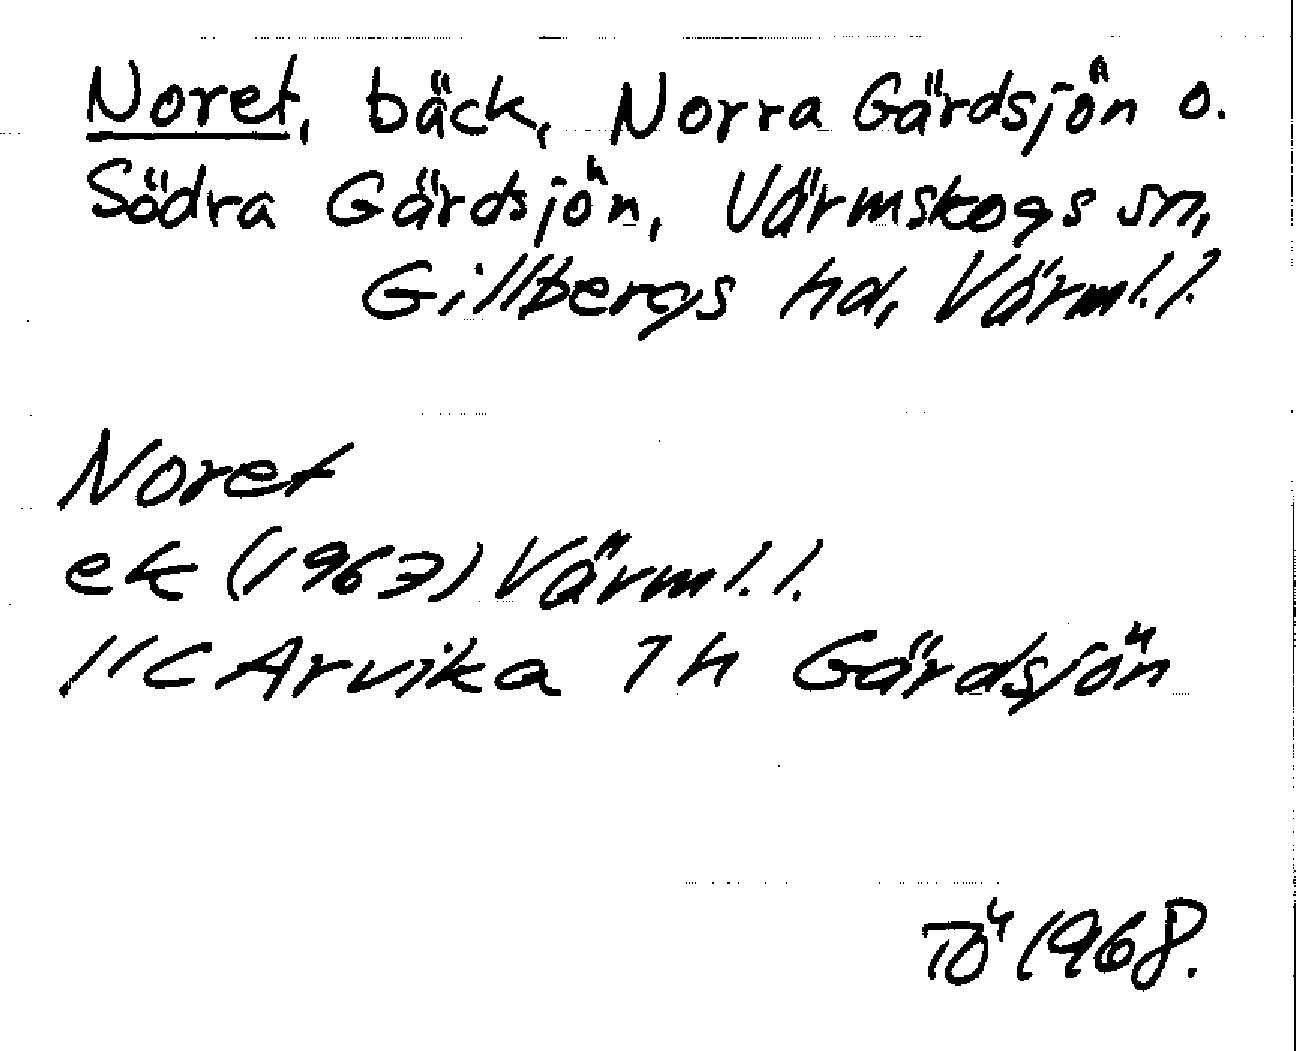 Noret, bäck, Norra Gärdsjön o.
Södra Gärdsjön, Värmskogs sn,
Gillbergs hd, Värml. l.
Noret
ek (1963) Värml. l.
11C Arvika 7h Gärdsjön
Tö 1968.